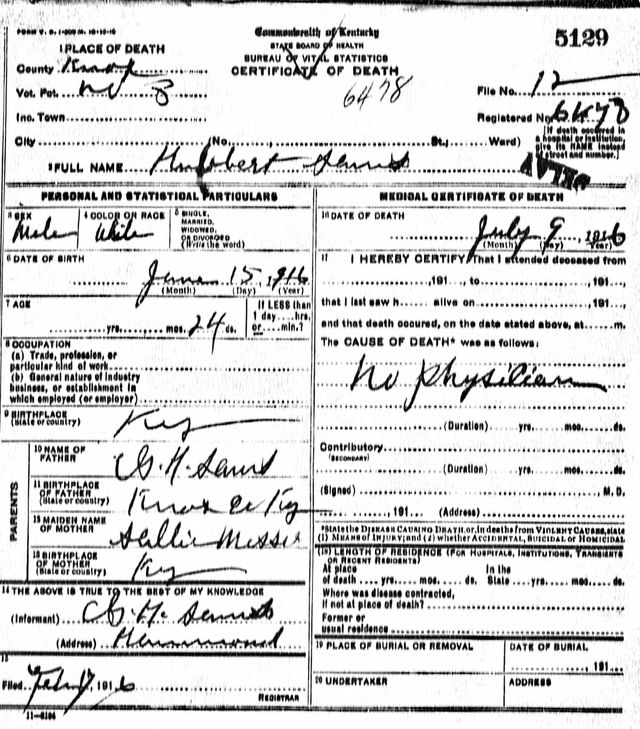 FORM V. S. 1-
Commonwealth of Kentucky
STATE BOARD OF HEALTH
BUREAU OF VITAL STATISTICS
CERTIFICATE OF DEATH
5129
6478
1 PLACE OF DEATH
County Knox
Vot. Pct. No 8
Ino. Town
City (No. St., Ward)
File No. 12
Registered No. 6478
[If death occured in a hospital or institution, give its NAME instead of street and number.]
2 FULL NAME Hubbert
PERSONAL AND STATISTICAL PARTICULARS
3 SEX Male
4 COLOR OR RACE White
5 SINGLE, MARRIED, WIDOWED, OR DIVORCED (Write the word)
6 DATE OF BIRTH June 15 1916
(Month) (Day) (Year)
7 AGE yrs. mos. 24 ds.
If LESS than 1 day hrs. or min.?
8 OCCUPATION
(a) Trade, profession, or particular kind of work
(b) General nature of industry business, or establishment in which employed (or employer)
9 BIRTHPLACE (State or country) Ky
PARENTS
10 NAME OF FATHER G. H.
11 BIRTHPLACE OF FATHER (State or country) Knox Co Ky
12 MAIDEN NAME OF MOTHER Sallie Messer
13 BIRTHPLACE OF MOTHER (State or country) Ky
14 THE ABOVE IS TRUE TO THE BEST OF MY KNOWLEDGE
(Informant) G. H.
(Address) Hammond
15
Filed 191 6
REGISTRAR
11-5184
MEDICAL CERTIFICATE OF DEATH
16 DATE OF DEATH
July 9 1916
(Month) (Day) (Year)
17 I HEREBY CERTIFY, That I attended deceased from
191 , to 191 ,
that I last saw h alive on 191 ,
and that death occured, on the date stated above, at m.
The CAUSE OF DEATH* was as follows:
No physician
(Duration) yrs. mos. ds.
Contributory (SECONDARY)
(Duration) yrs. mos. ds.
(Signed) M. D.
191 (Address)
*State the DISEASE CAUSING DEATH, or, in deaths from VIOLENT CAUSES, state (1) MEANS OF INJURY; and (2) whether ACCIDENTAL, SUICIDAL or HOMICIDAL
(18) LENGTH OF RESIDENCE (FOR HOSPITALS, INSTITUTIONS, TRANSIENTS OR RECENT RESIDENTS)
At place of death yrs. mos. ds. In the State yrs. mos. ds.
Where was disease contracted, if not at place of death?
Former or usual residence
19 PLACE OF BURIAL OR REMOVAL
DATE OF BURIAL
191
20 UNDERTAKER
ADDRESS